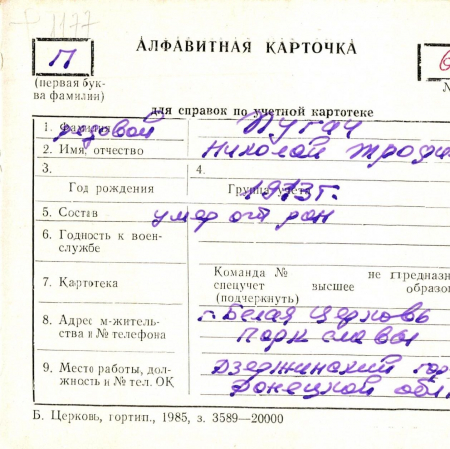 1177
АЛФАВИТНАЯ КАРТОЧКА
П
(первая бук-
ва фамилии)
для справок по учетной картотеке
1. Фамилия рядовой Пугач
2. Имя, отчество Николай Трофи
3. 4.
Год рождения Группа учета 1913 г.
5. Состав умер от ран
6. Годность к воен-
службе
7. Картотека
Команда № не предназн
спецучет высшее образо
(подчеркнуть)
8. Адрес м-житель-
ства и № телефона
г. Белая Церковь
Парк славы
9. Место работы, дол-
жность и № тел. ОК
Дзержинский гор
Донецкой обл
Б. Церковь, гортип., 1985, з. 3589—20000